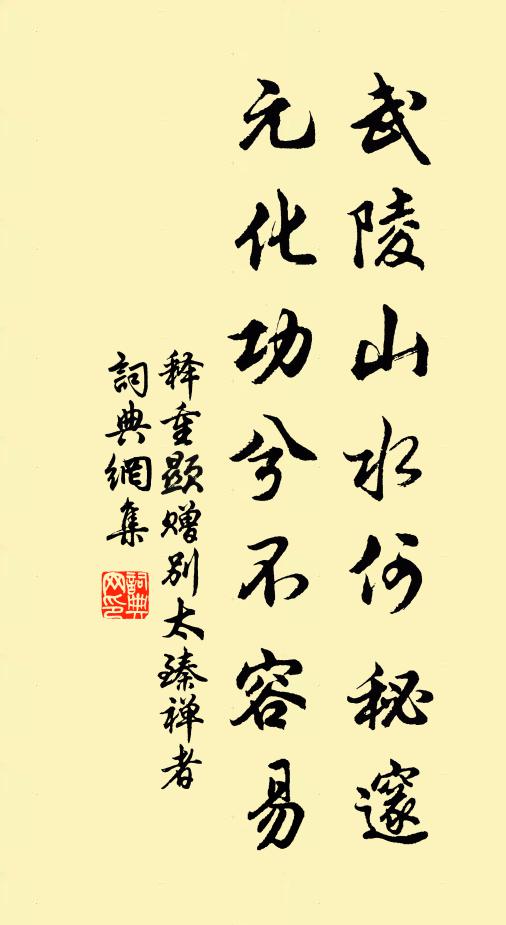 武陵山水何秘邃
元化功兮不容易
释重顯赠别太臻禅者
詞典網集
詞典网印